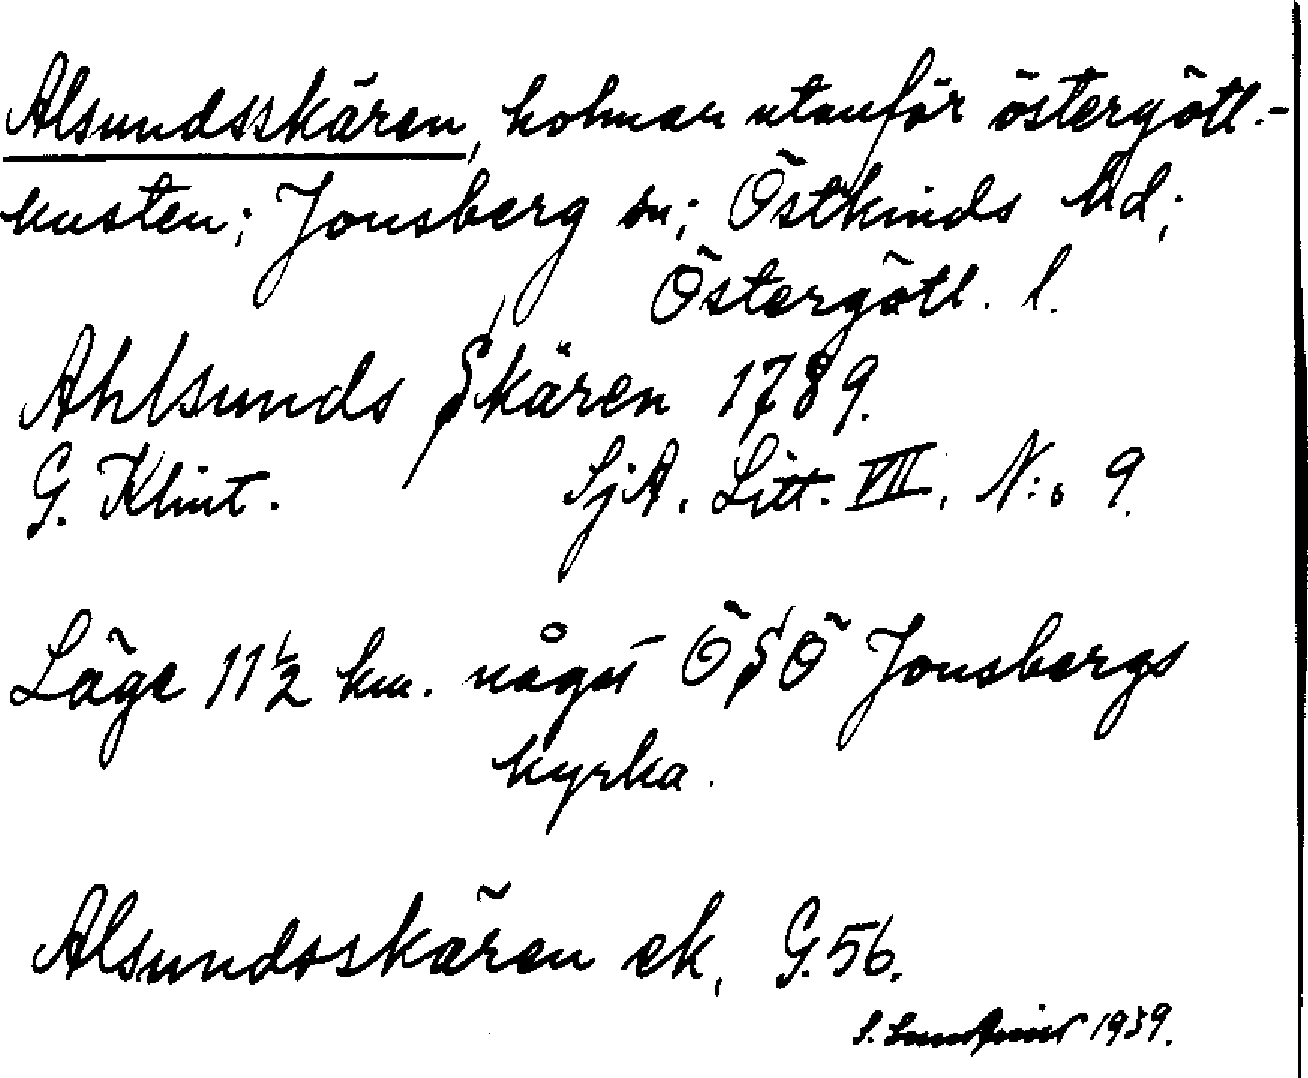 Alsundsskären, holmar utanför östergötl.-
kusten; Jonsberg sn; Östkinds hd;
Östergötl. l.
Ahlsunds Skären 1789.
G. Klint. SjA. Litt. VII. N:o 9.
Läge 11½ km. något ÖSÖ Jonsbergs
kyrka.
Alsundsskären ek, G.56.
S. 1939.